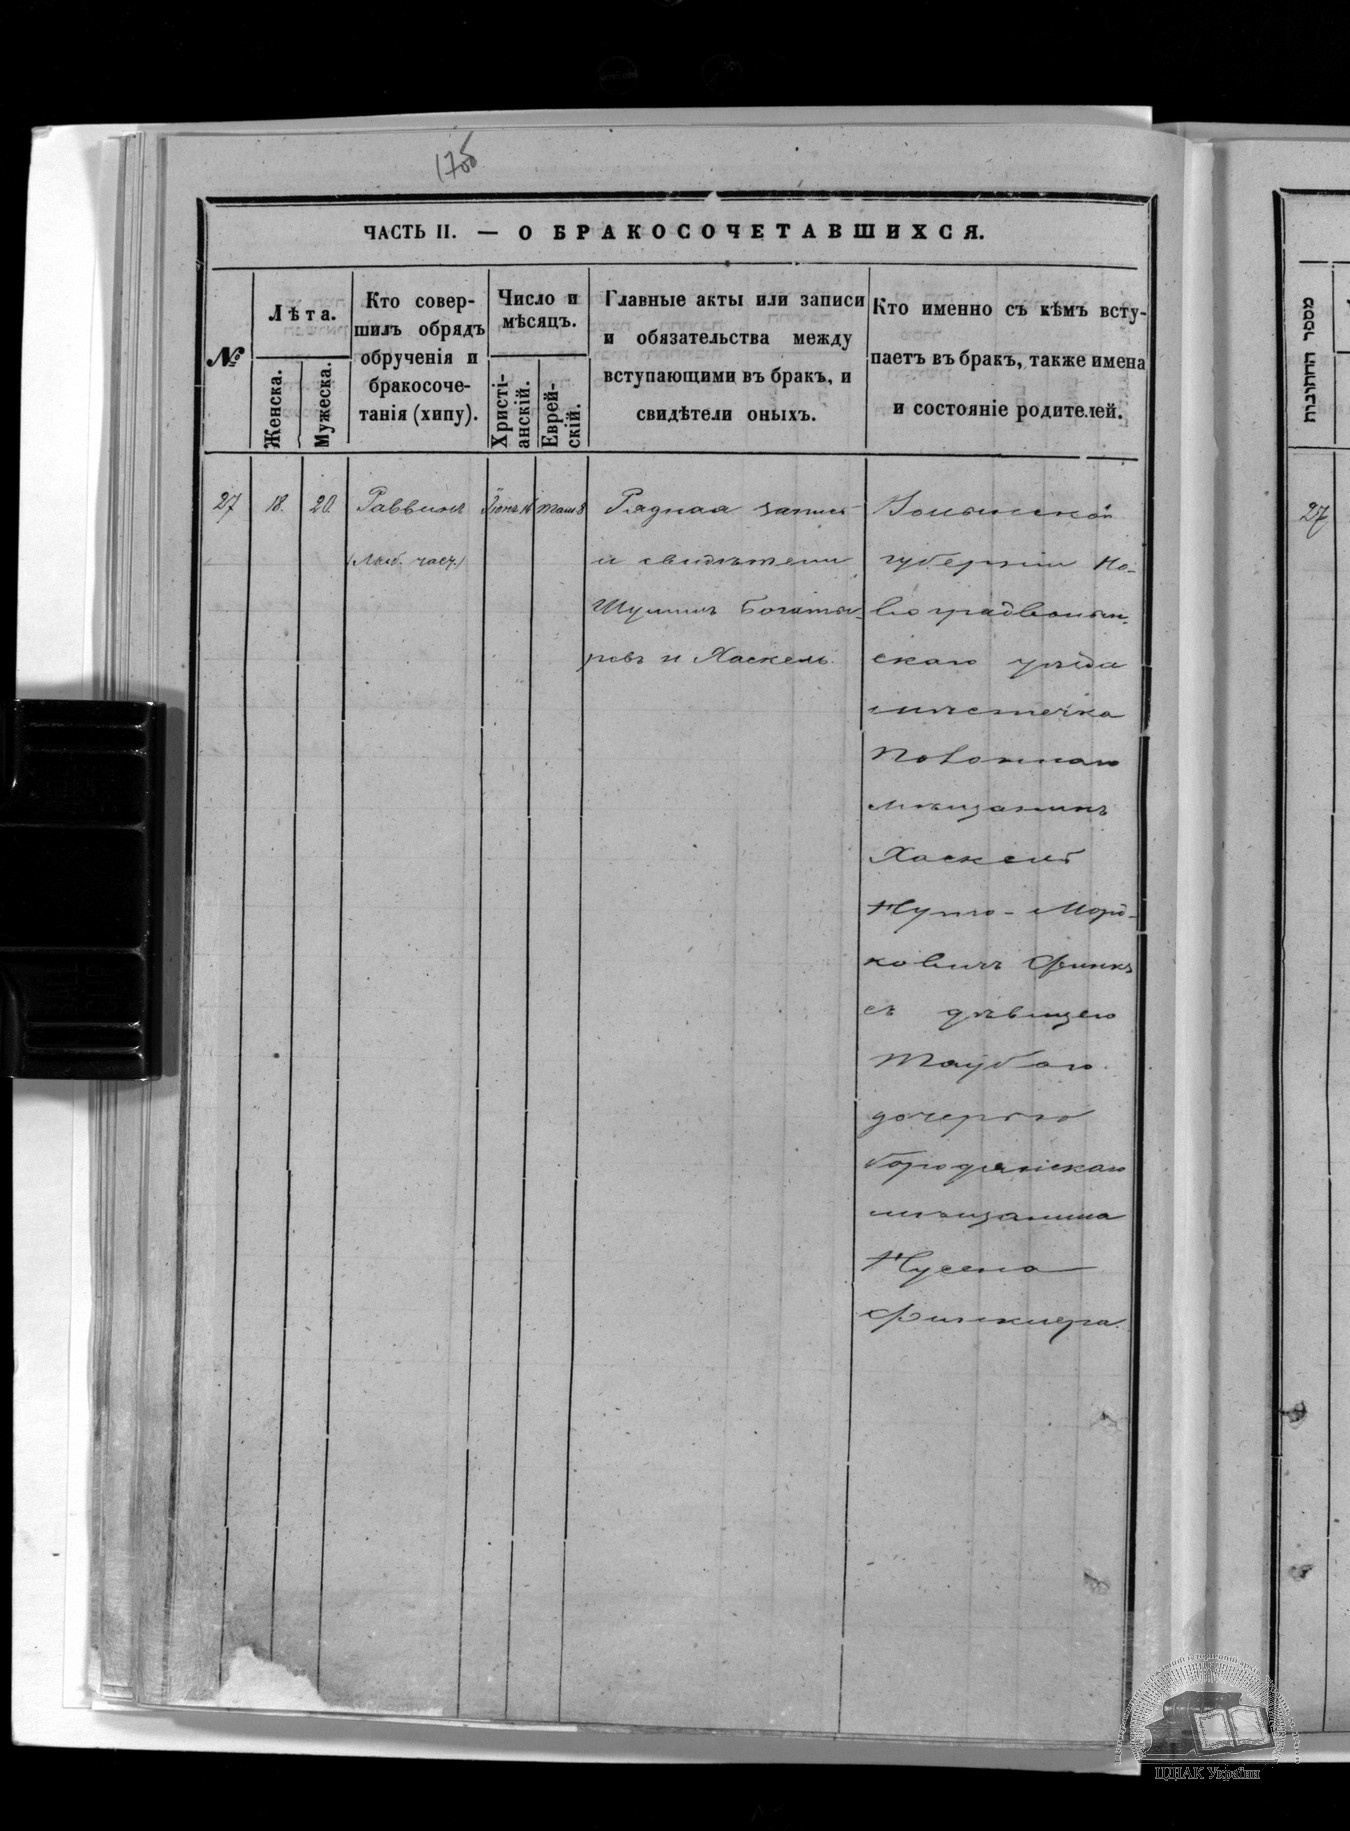 ЧАСТЬ II. — О БРАКОСОЧЕТАВШИХСЯ.
№
Лѣта.
Женска.
Мужеска.
Кто совер-
шилъ обрядъ
обрученія и
бракосоче-
танія (хипу).
Число и
мѣсяцъ.
Христі-
анскій.
Еврей-
скій.
Главные акты или записи
и обязательства между
вступающими въ бракъ, и
свидѣтели оныхъ.
Кто именно съ кѣмъ всту-
паетъ въ бракъ, также имена
и состояніе родителей.
27
18.
20.
Раввинъ
Рядная запись
и свидѣтели
Шулимъ Богаты-
ревъ и Хаскель
Волынской
губерніи Но-
воградволын-
скаго уѣзда
мѣстечка
мѣщанинъ
Хаскель
Нухго-Морд-
ковичъ Финкъ
съ дѣвицею
Таубою
дочерью
Бородянскаго
мѣщанина
Нусена
Финклера.
מספר החתונות
27
ЦДІАК України